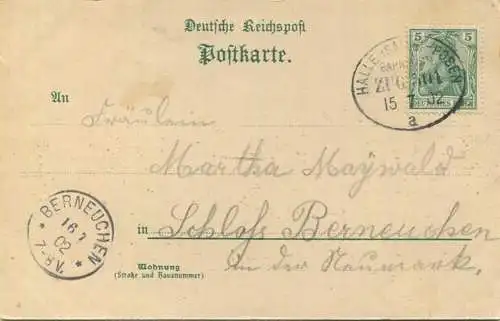 Deutsche Reichspost
Postkarte.
5 5
HALLE (SAALE) POSEN
BAHNPOST
ZUG
15 7 02
a
An
Fräulein
Martha Maywald
in Schloss Berneuchen
in der Neumark.
Wohnung
(Straße und Hausnummer)
* BERNEUCHEN *
16 7
02
7-8V.